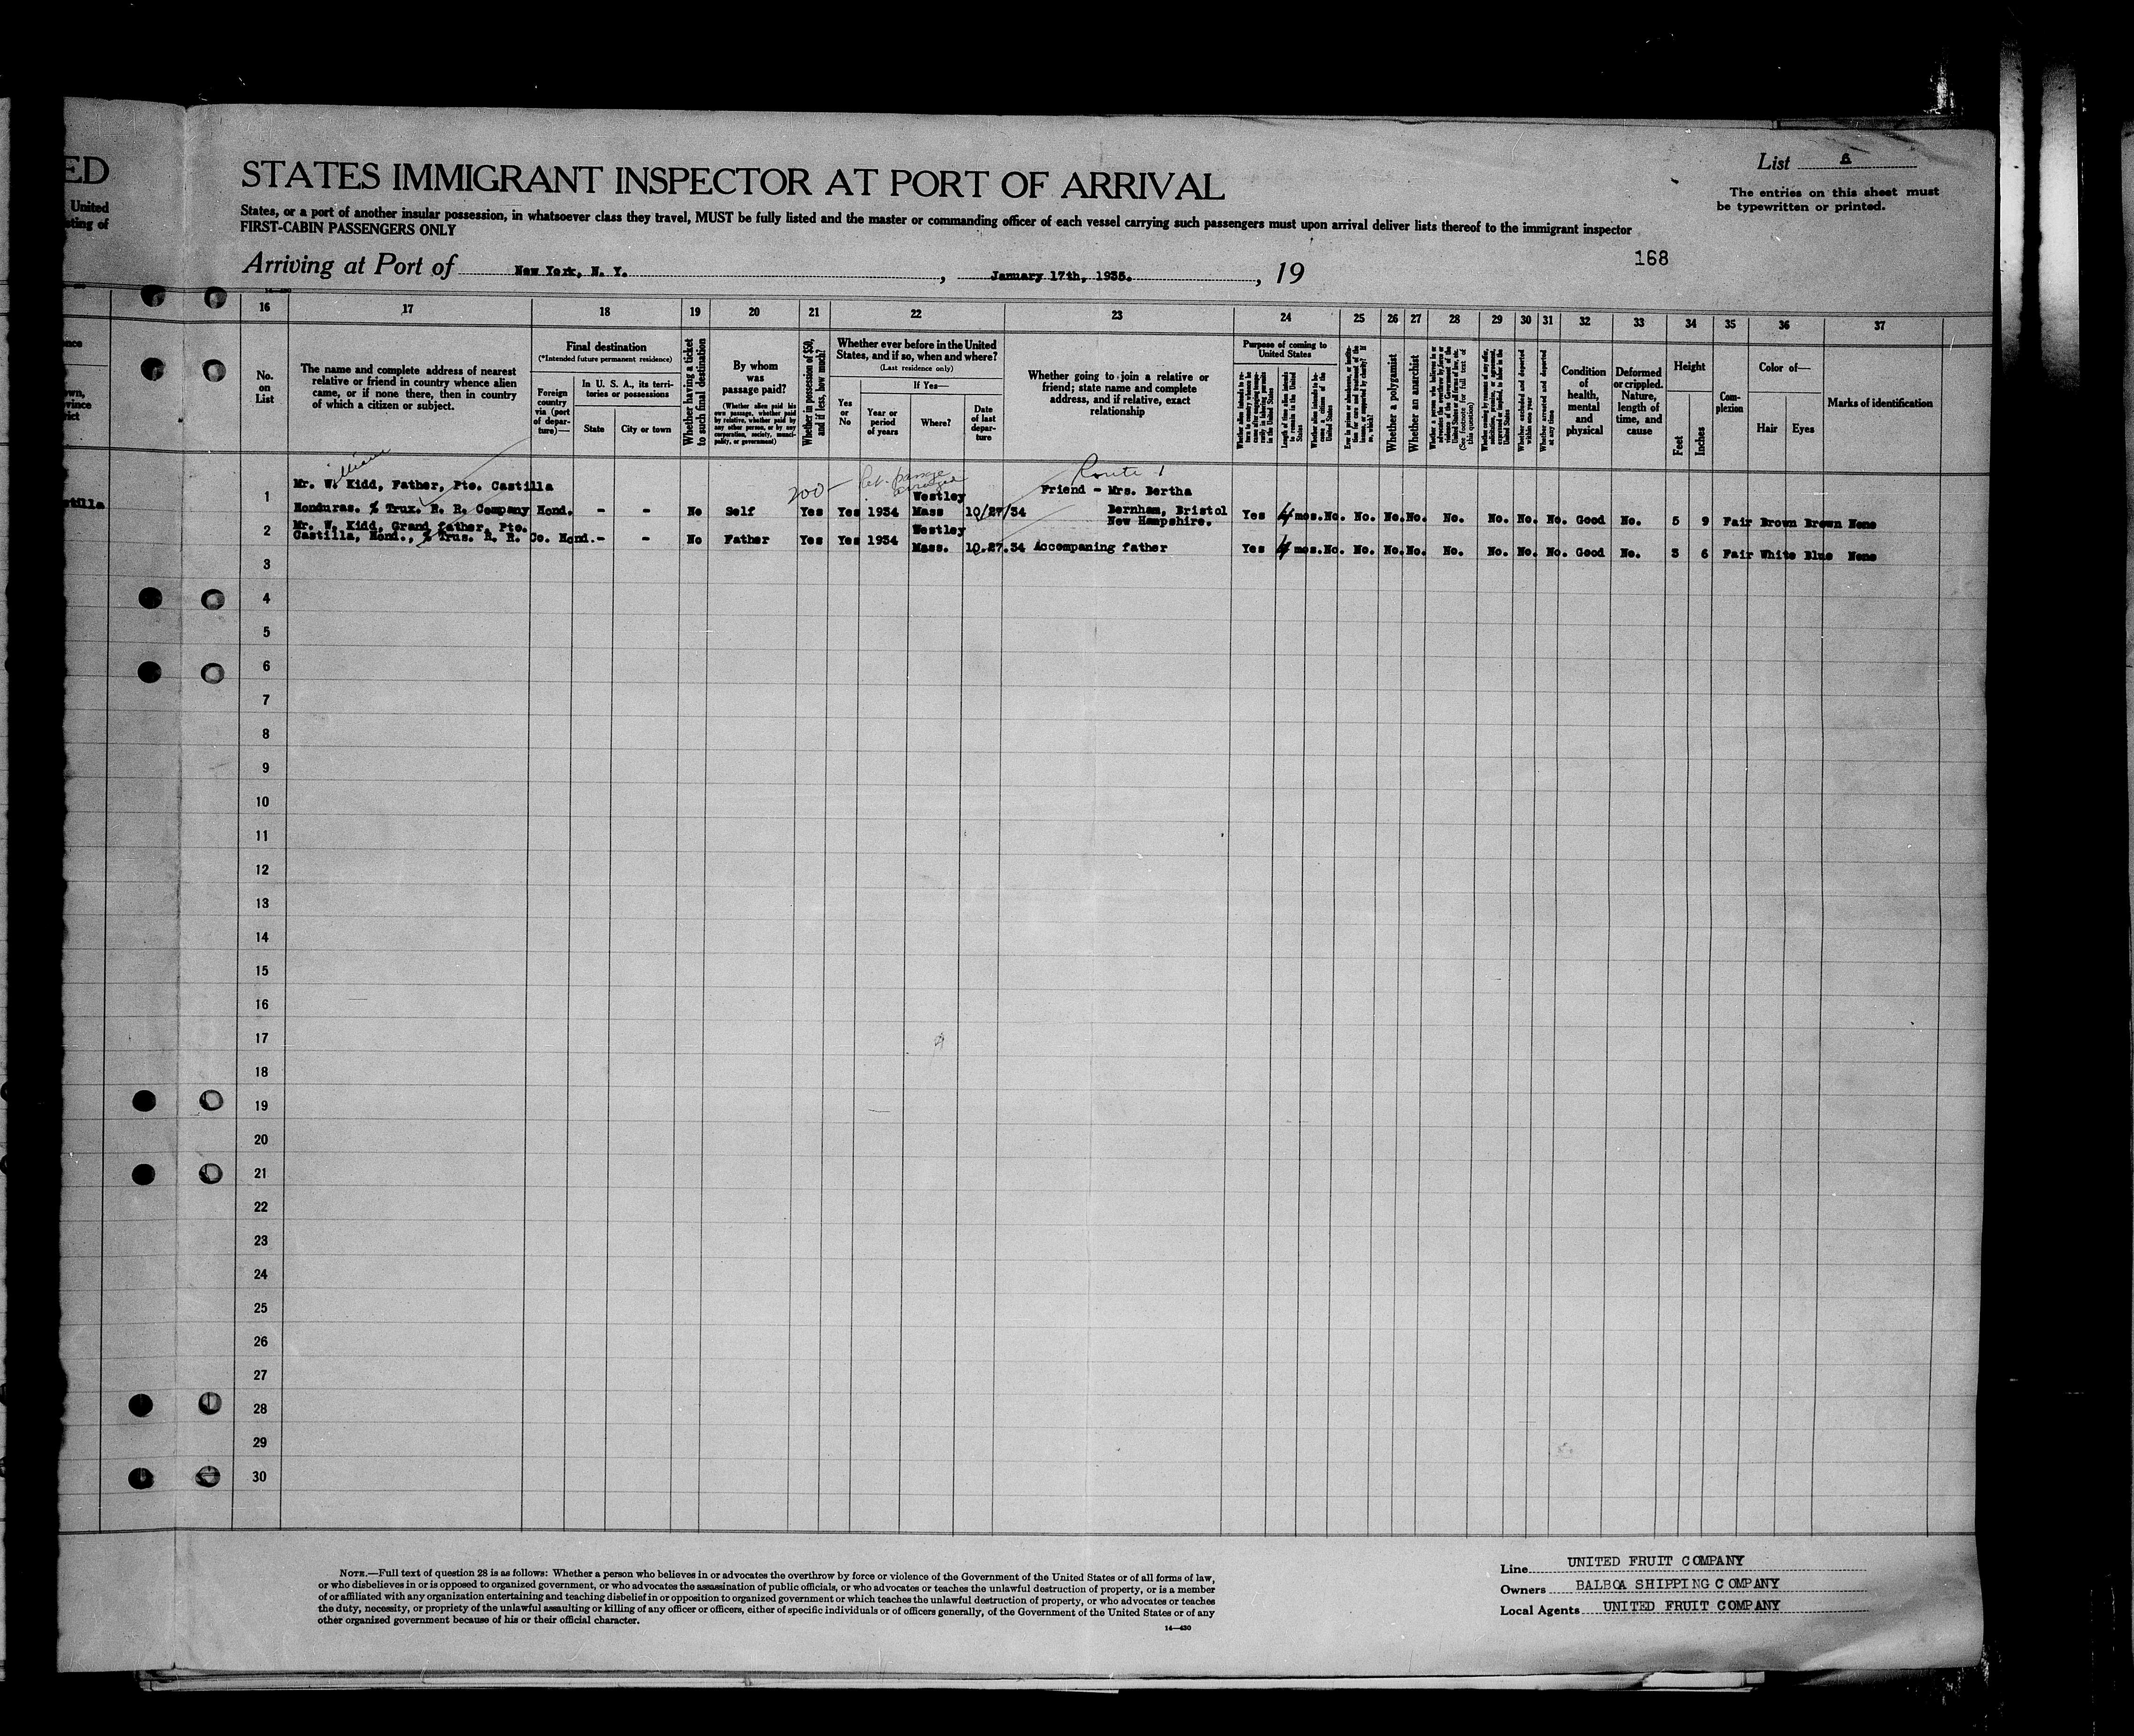 ED
United
sting of
List 8
STATES IMMIGRANT INSPECTOR AT PORT OF ARRIVAL
The entries on this sheet must
be typewritten or printed.
States, or a port of another insular possession, in whatsoever class they travel, MUST be fully listed and the master or commanding officer of each vessel carrying such passengers must upon arrival deliver lists thereof to the immigrant inspector
FIRST-CABIN PASSENGERS ONLY
168
Arriving at Port of New York, N. Y. , January 17th, 1935. , 19
16 17 18 19 20 21 22 23 24 25 26 27 28 29 30 31 32 33 34 35 36 37
No.
on
List
The name and complete address of nearest
relative or friend in country whence alien
came, or if none there, then in country
of which a citizen or subject.
Final destination
(*Intended future permanent residence)
Foreign
country
via (port
of depar-
ture)—
In U. S. A., its terri-
tories or possessions
State
City or town
Whether having a ticket
to such final destination
By whom
was
passage paid?
(Whether alien paid his
own passage, whether paid
by relative, whether paid by
any other person, or by any
corporation, society, munici-
pality, or government)
Whether in possession of $50,
and if less, how much?
Whether ever before in the United
States, and if so, when and where?
(Last residence only)
Yes
or
No
If Yes—
Year or
period
of years
Where?
Date
of last
depar-
ture
Whether going to join a relative or
friend; state name and complete
address, and if relative, exact
relationship
Purpose of coming to
United States
Length of time alien intends
to remain in the United
States
Whether a polygamist
Whether an anarchist
(See footnote for full text of
this question)
Whether arrested and deported
at any time
Condition
of
health,
mental
and
physical
Deformed
or crippled.
Nature,
length of
time, and
cause
Height
Feet
Inches
Com-
plexion
Color of—
Hair
Eyes
Marks of identification
william
200-
Route 1
1 Mr. W. Kidd, Father, Pto. Castilla
Westley
Friend - Mrs. Bertha
Honduras. % Trux. R. R. Company Hond. - - No Self Yes Yes 1934 Mass 10/27/34 Bernham, Bristol Yes 4 mos. No. No. No. No. No. No. No. No. Good No. 5 9 Fair Brown Brown None
New Hampshire.
2 Mr. W. Kidd, Grand father, Pto.
Westley
Castilla, Hond., % Trus. R. R. Co. Hond. - - No Father Yes Yes 1934 Mass. 10.27.34 Accompaning father Yes 4 mos. No. No. No. No. No. No. No. No. Good No. 3 6 Fair White Blue None
3
4
5
6
7
8
9
10
11
12
13
14
15
16
17
18
19
20
21
22
23
24
25
26
27
28
29
30
NOTE.—Full text of question 28 is as follows: Whether a person who believes in or advocates the overthrow by force or violence of the Government of the United States or of all forms of law,
or who disbelieves in or is opposed to organized government, or who advocates the assassination of public officials, or who advocates or teaches the unlawful destruction of property, or is a member
of or affiliated with any organization entertaining and teaching disbelief in or opposition to organized government or which teaches the unlawful destruction of property, or who advocates or teaches
the duty, necessity, or propriety of the unlawful assaulting or killing of any officer or officers, either of specific individuals or of officers generally, of the Government of the United States or of any
other organized government because of his or their official character.
14—430
Line UNITED FRUIT COMPANY
Owners BALBOA SHIPPING COMPANY
Local Agents UNITED FRUIT COMPANY